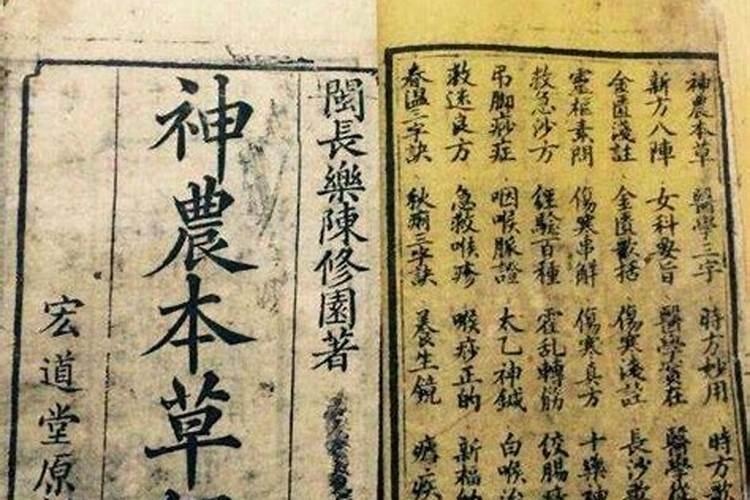 神農本草 醫學三字 時方妙用 時方歌
新方八陣 女科要旨 醫學實在 醫學
金匱淺註 金匱歌括 傷寒淺註 長沙
靈樞素問 傷寒串解 傷寒真方 十藥
救急沙方 經驗百種 霍乱轉筋 絞腸
吊脚痧症 咽喉脈證 太乙神鍼 白喉
救迷良方 急救喉疹 喉痧正的 新福
春温三字訣 秋痢三字訣 養生鏡 瘧疾
閩長樂陳修園著
神農本草
宏道堂原